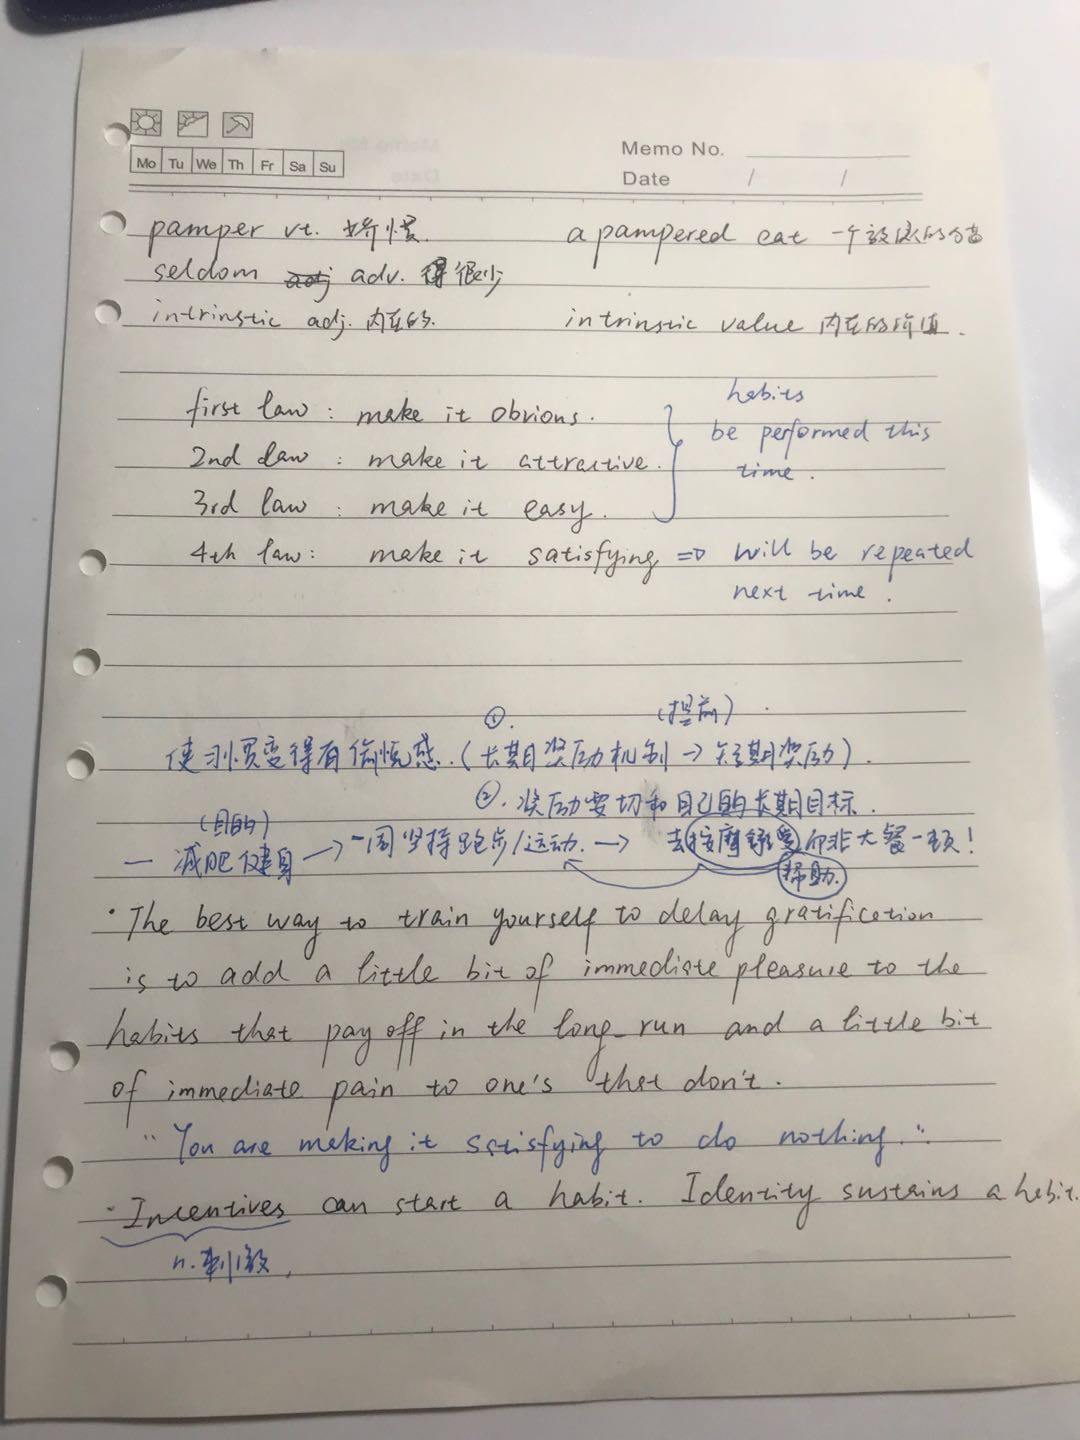 Mo Tu We Th Fr Sa Su
Memo No.
Date / /
pamper vt. 娇惯. a pampered cat 一个被宠的猫
seldom adj adv. 很少
intrinstic adj. 内在的. intrinstic value 内在的价值.
first law: make it obvious.
2nd law: make it attractive.
3rd law: make it easy.
habits
be performed this
time.
4th law: make it satisfying => will be repeated
next time!
①. (提前)
使习惯变得有愉悦感.(长期奖励机制→短期奖励).
②. 奖励要切和自己的长期目标.
(目的)
一减肥健身→一周坚持跑步/运动.→去按摩 而非大餐一顿!
帮助.
·The best way to train yourself to delay gratification
is to add a little bit of immediate pleasure to the
habits that pay off in the long-run and a little bit
of immediate pain to one's that don't.
"You are making it satisfying to do nothing."
·Incentives can start a habit. Identity sustains a habit.
n.刺激,